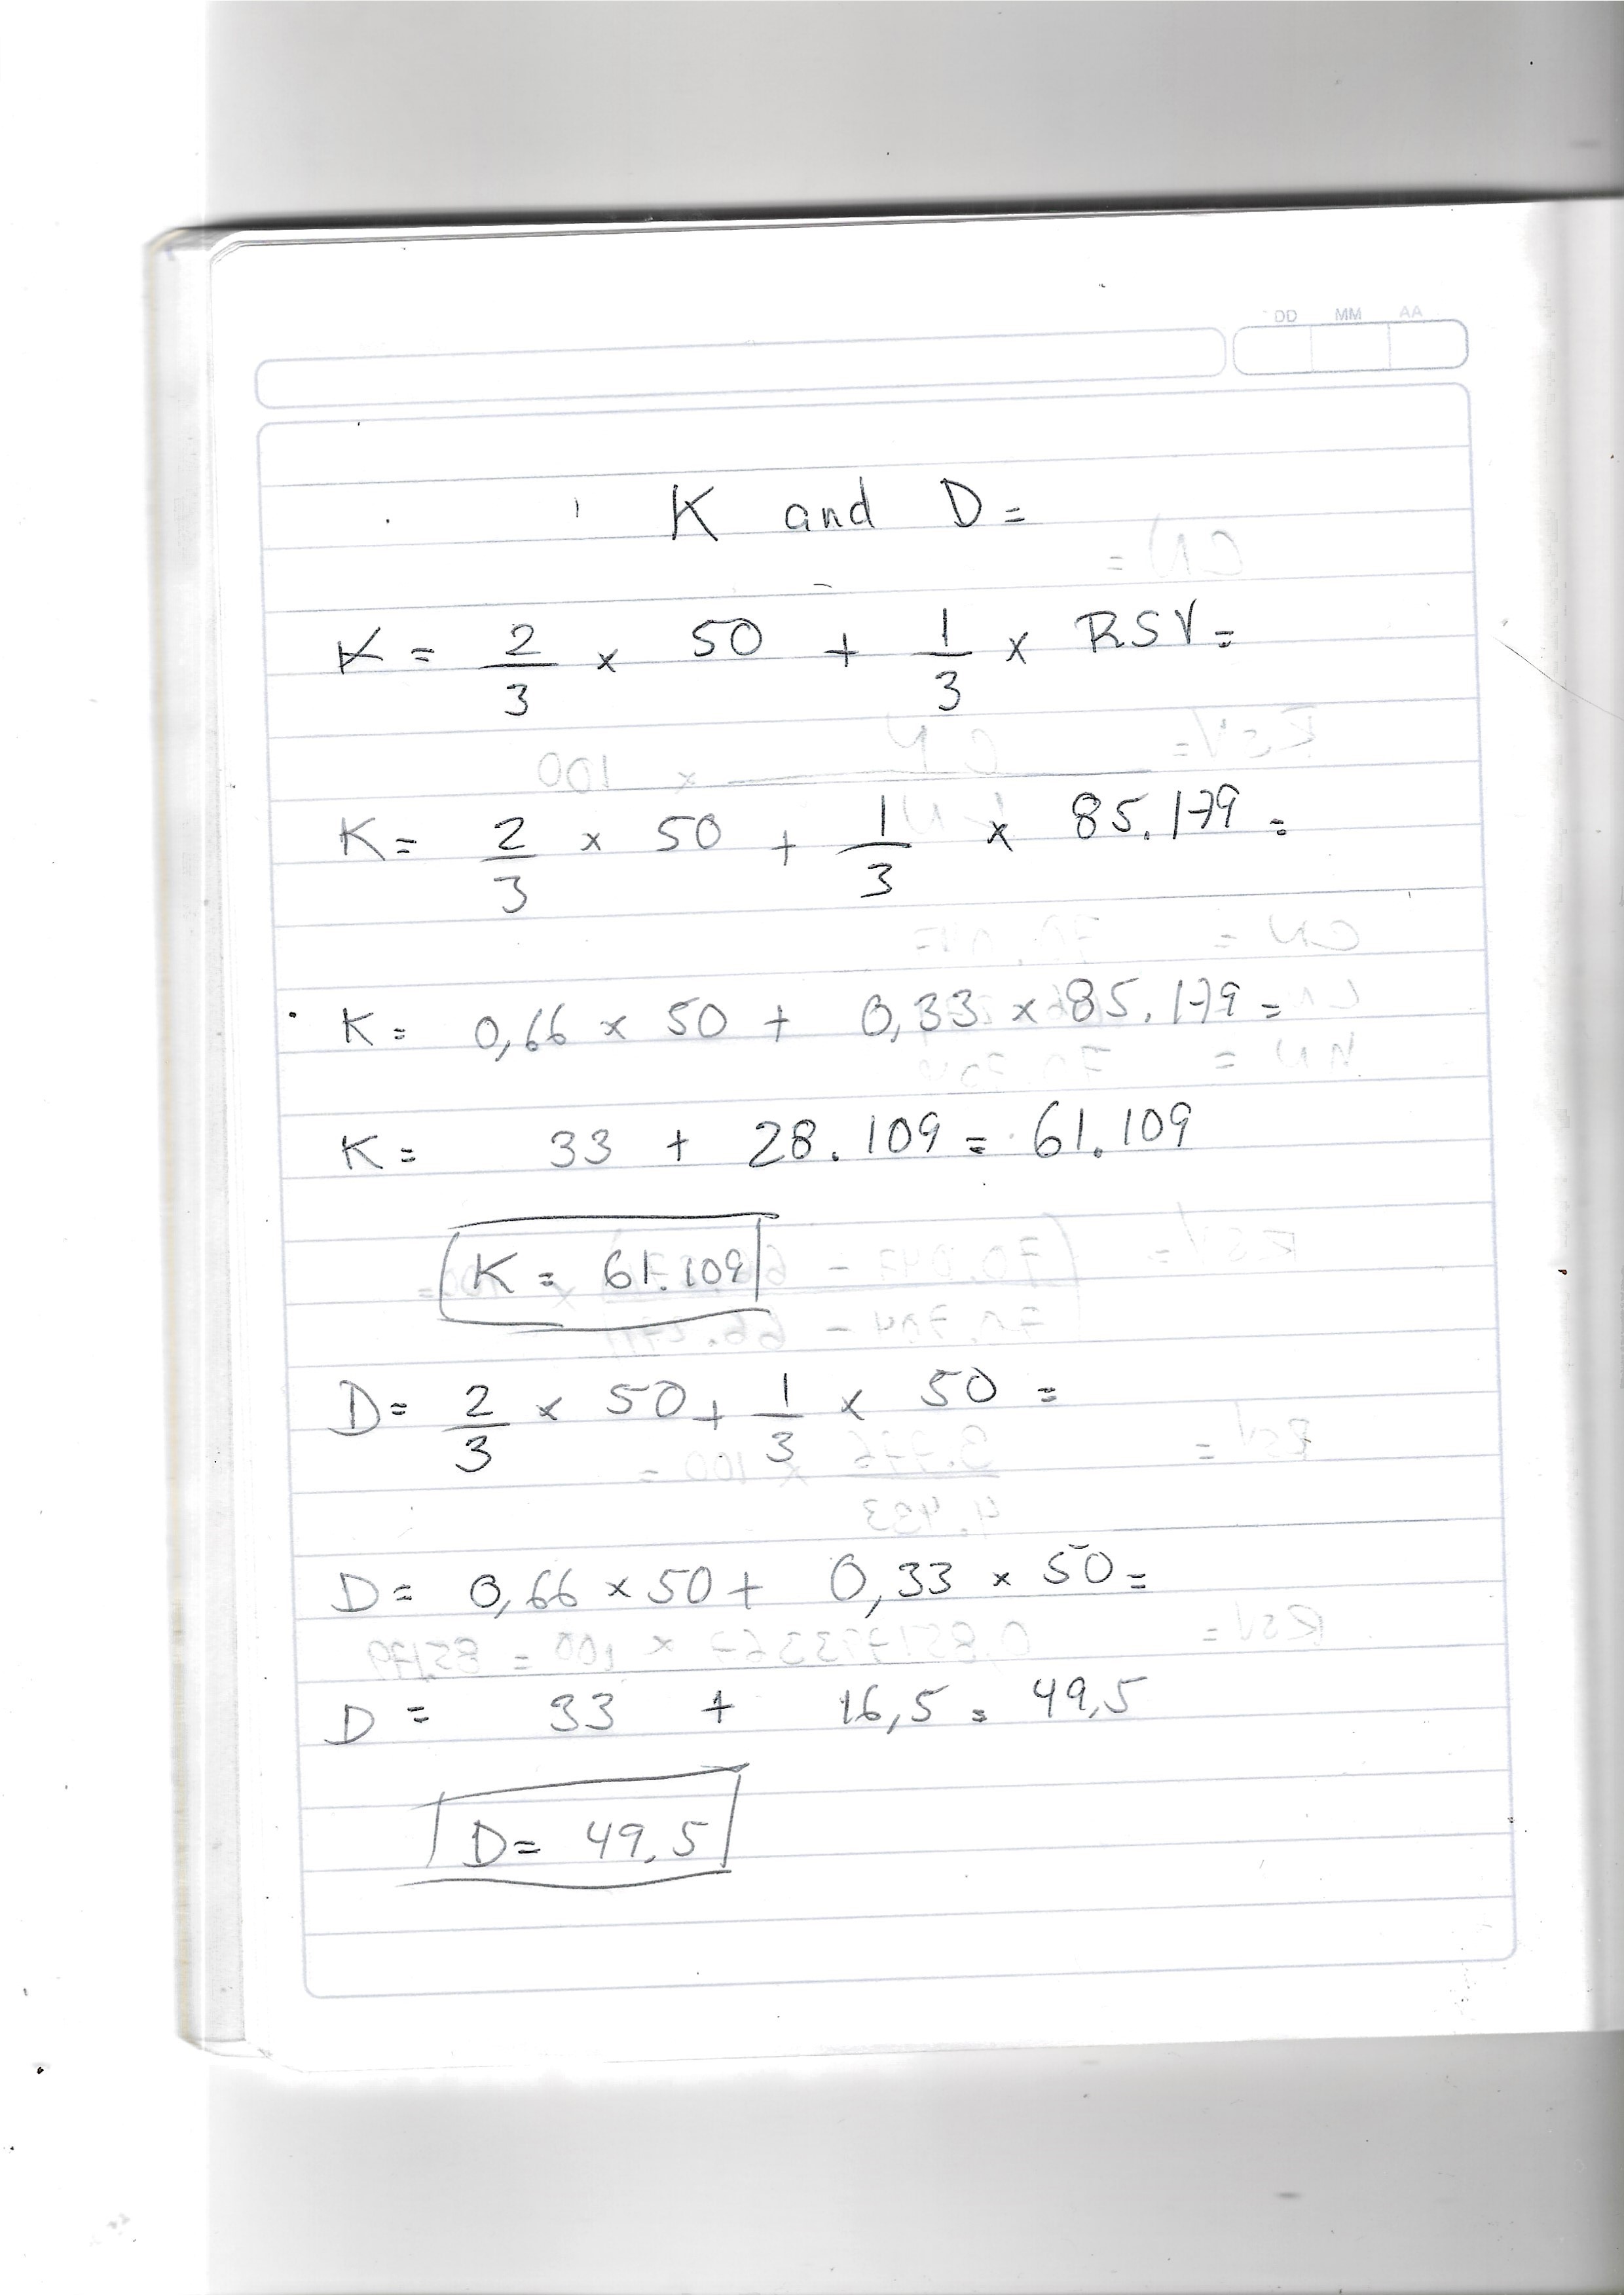 DD MM AA
K and D =
K = 2/3 x 50 + 1/3 x RSV =
K = 2/3 x 50 + 1/3 x 85.179 =
K = 0,66 x 50 + 0,33 x 85.179 =
K = 33 + 28.109 = 61.109
K = 61.109
D = 2/3 x 50 + 1/3 x 50 =
D = 0,66 x 50 + 0,33 x 50 =
D = 33 + 16,5 = 49,5
D = 49,5